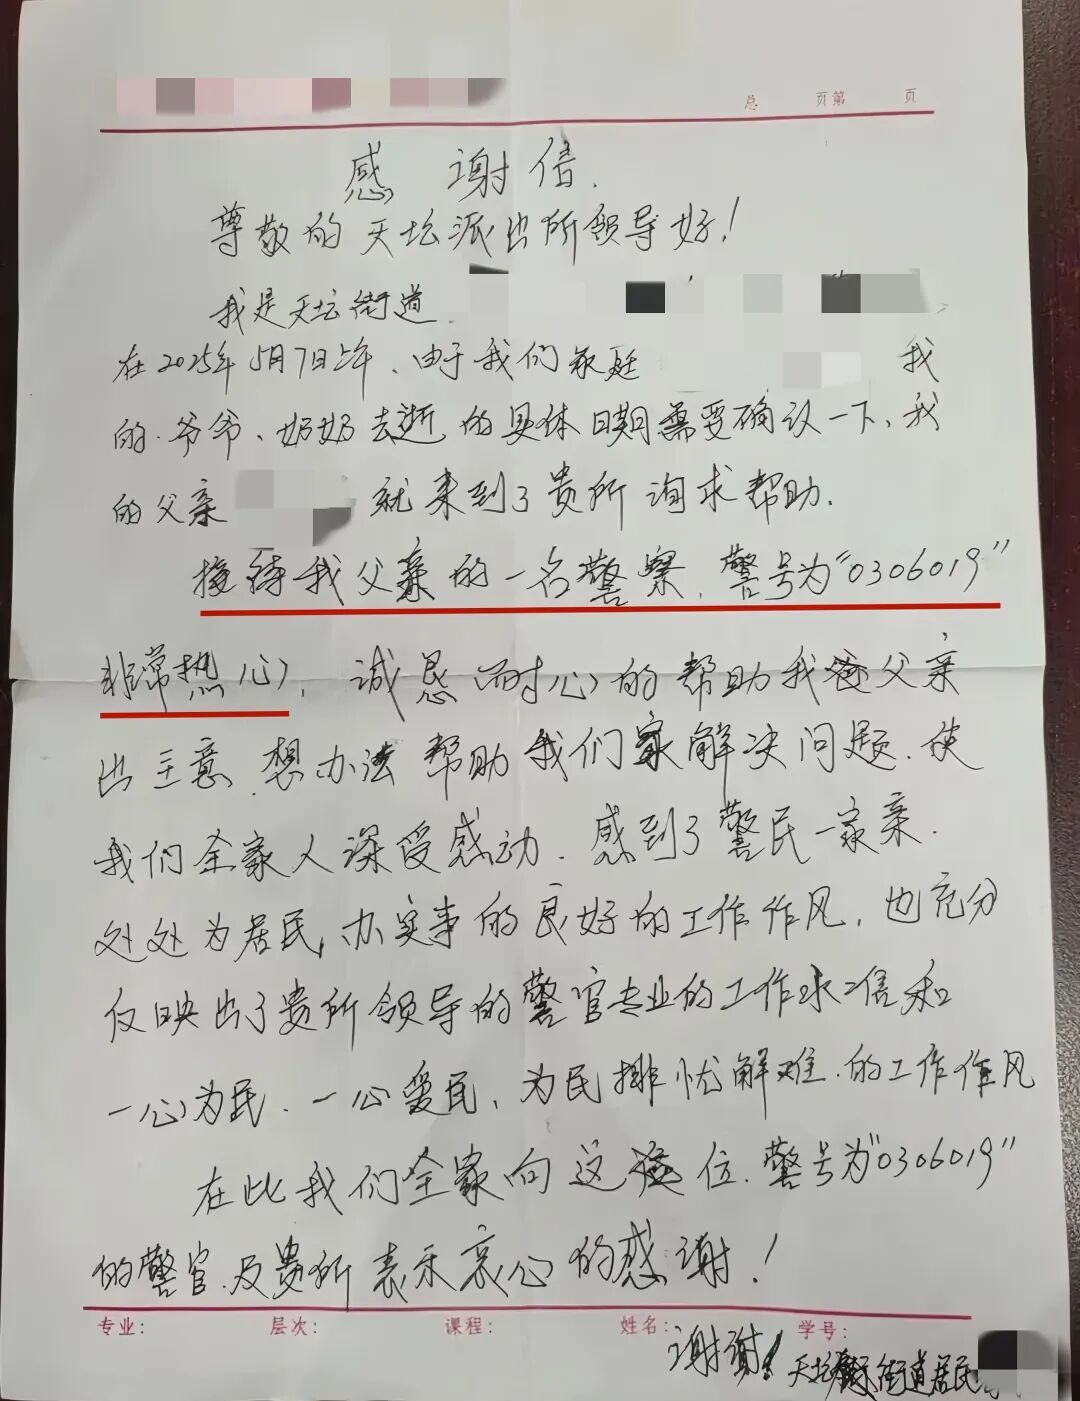 总 页第 页
感谢信.
尊敬的天坛派出所领导好!
我是天坛街道
在2025年5月7日上午、由于我们家庭 我
的.爷爷、奶奶去逝的具体日期需要确认一下、我
的父亲 就来到了贵所询求帮助.
接待我父亲的一名警察.警号为"0306019"
非常热心、诚恳耐心的帮助我爸父亲
出主意.想办法帮助我们家解决问题.使
我们全家人深受感动.感到了警民一家亲.
处处为居民,办实事的良好的工作作风,也充分
反映出了贵所领导的警官专业的工作水准和
一心为民.一心爱民、为民排忧解难.的工作作风
在此我们全家向这位.警号为"0306019"
的警官.及贵所表示衷心的感谢!
专业: 层次: 课程: 姓名: 学号:
谢谢!
天坛街道居民